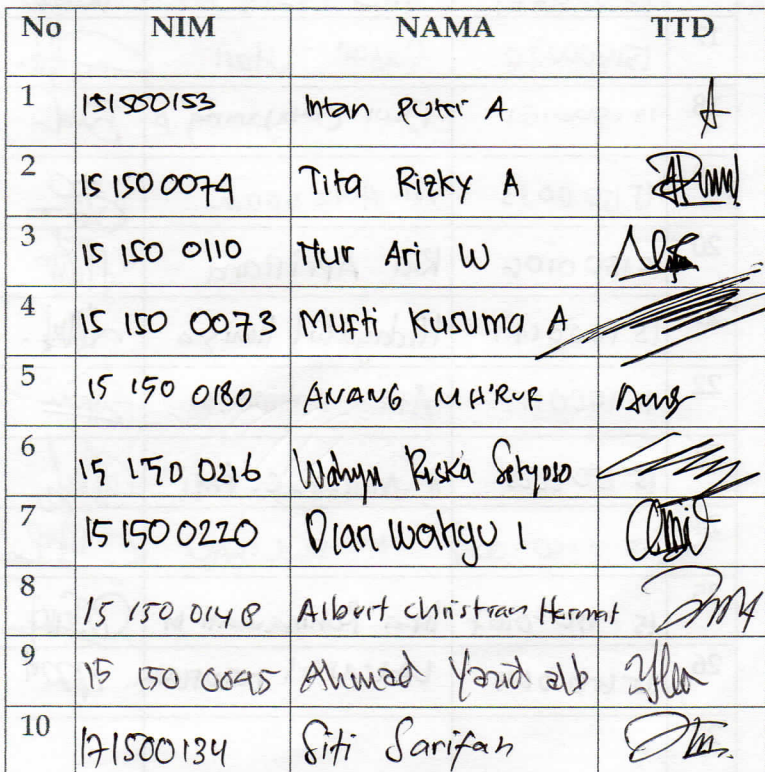 No NIM NAMA TTD
1 151500153 Intan Putri A
2 15 150 0074 Tita Rizky A
3 15 150 0110 Nur Ari W
4 15 150 0073 Mufti Kusuma A
5 15 150 0180 ANANG MA'RUF
6 15 150 0216 Wahyu Riska Setyoso
7 15 150 0220 Dian Wahyu I
8 15 150 0148 Albert Christian Hermat
9 15 150 0095 Ahmad
10 171500134 Siti Sarifah